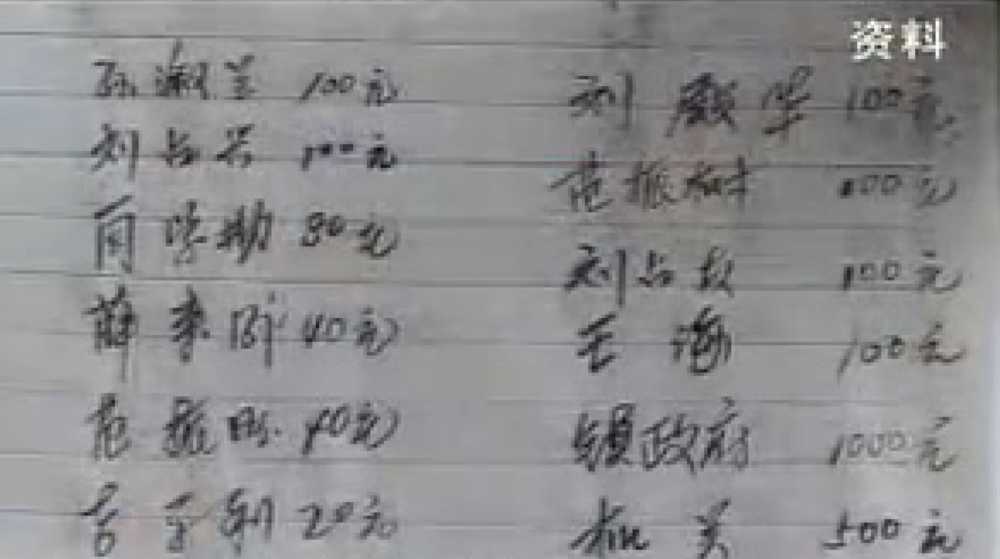 资料
孙淑兰 100元
刘殿华 100元
刘占兴 100元
范振树 100元
30元
刘占友 100元
薛来阶 40元
王海 100元
范振 40元
镇政府 1000元
20元
机关 500元